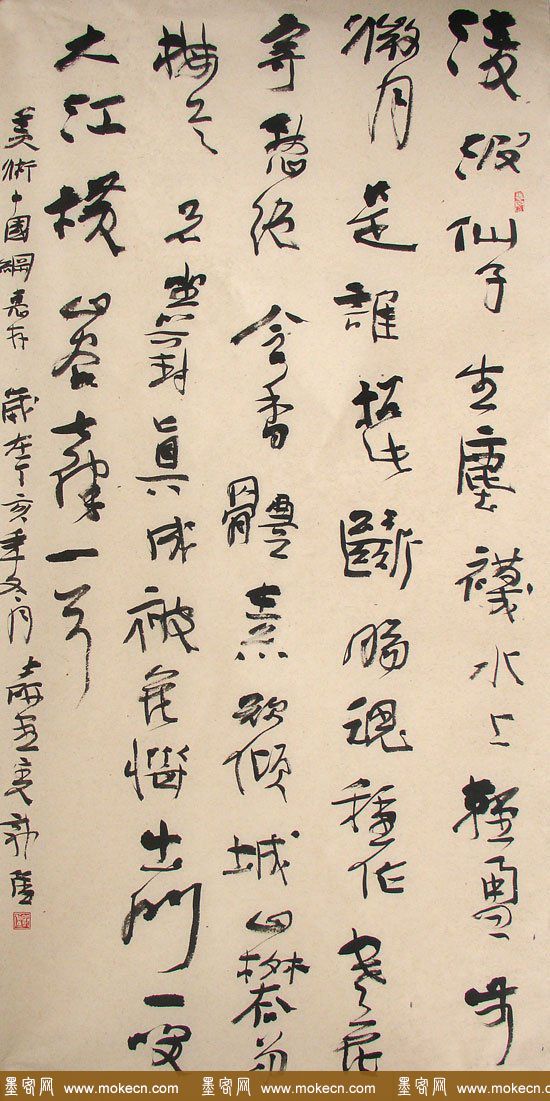 淩波仙子生塵襪水上輕盈步
微月是誰招此斷腸魂種作寒花
寄愁絕含香體素欲傾城山礬弟
梅是兄坐對真成被花惱出門一笑
大江橫山谷七律一首
美術中國網惠存歲在丁亥年冬月
墨客网 www.mokecn.com 墨客网 www.mokecn.com 墨客网 www.mokecn.com